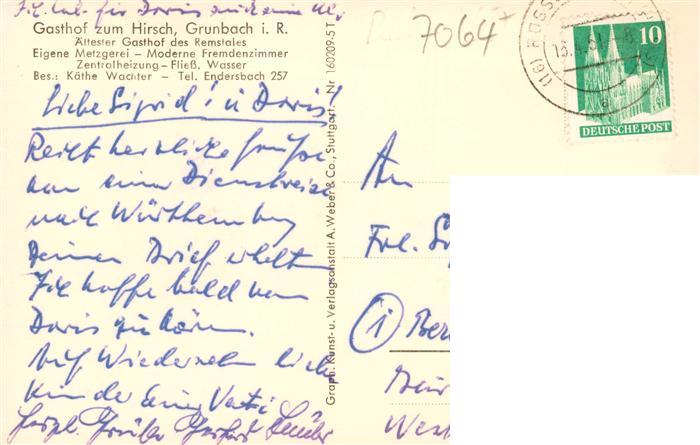 Gasthof zum Hirsch, Grunbach i. R.
Ältester Gasthof des Remstales
Eigene Metzgerei — Moderne Fremdenzimmer
Zentralheizung - Fließ. Wasser
Bes.: Käthe Wachter — Tel. Endersbach 257
Liebe Sigrid! u Doris!
Recht herzliche Grüße
von einer Dienstreise
nach Württemberg
Deinen Brief erhalten
Ich hoffe bald von
Doris zu hören.
Auf Wiedersehn liebe
Kinder Euer Vati
Herzl. Grüße
Graph. Kunst- u. Verlagsanstalt A. Weber & Co., Stuttgart - Nr 160209-5 T
7064
10
DEUTSCHE POST
An
Frl. Si
(1) Ber
West